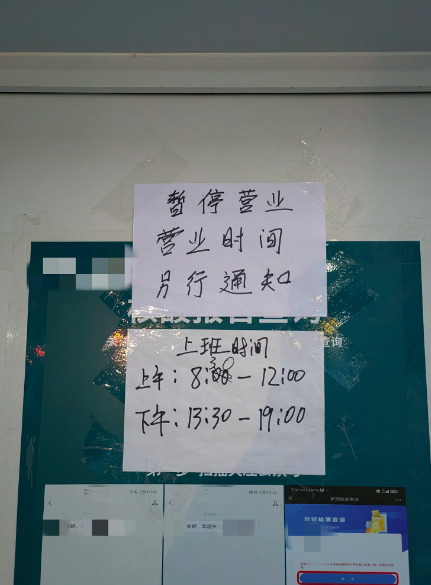 暂停营业
营业时间
另行通知
核酸报告查询
查询
上班时间
上午：8:30—12:00
下午：13:30—19:00